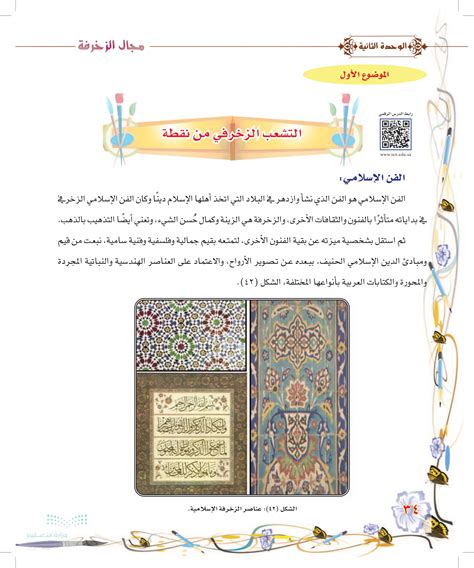 الوحدة الثانية
مجال الزخرفة
الموضوع الأول
رابط الدرس الرقمي
www.ien.edu.sa
التشعب الزخرفي من نقطة
الفن الإسلامي:
الفن الإسلامي هو الفن الذي نشأ وازدهر في البلاد التي اتخذ أهلها الإسلام دينًا وكان الفن الإسلامي الزخرفي
في بداياته متأثرًا بالفنون والثقافات الأخرى، والزخرفة هي الزينة وكمال حُسن الشيء، وتعني أيضًا التذهيب بالذهب.
ثم استقل بشخصية ميزته عن بقية الفنون الأخرى، لتمتعه بقيم جمالية وفلسفية وفنية سامية، نبعت من قيم
ومبادئ الدين الإسلامي الحنيف، ببعده عن تصوير الأرواح، والاعتماد على العناصر الهندسية والنباتية المجردة
والمحورة والكتابات العربية بأنواعها المختلفة، الشكل (٤٢).
بسم الله الرحمن الرحيم
الشكل (٤٢): عناصر الزخرفة الإسلامية.
٣٤
وزارة التعليم